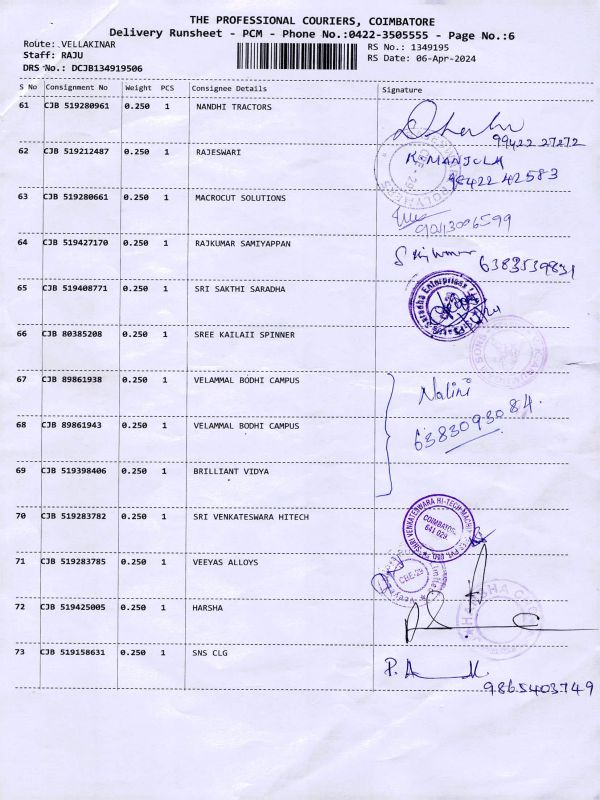 THE PROFESSIONAL COURIERS, COIMBATORE
Delivery Runsheet - PCM - Phone No.:0422-3505555 - Page No.:6
Route: VELLAKINAR RS No.: 1349195
Staff: RAJU RS Date: 06-Apr-2024
DRS No.: DCJB134919506
S No Consignment No Weight PCS Consignee Details Signature
61 CJB 519280961 0.250 1 NANDHI TRACTORS
99422 27272
62 CJB 519212487 0.250 1 RAJESWARI K. MANJULA
98422 42583
63 CJB 519280661 0.250 1 MACROCUT SOLUTIONS
64 CJB 519427170 0.250 1 RAJKUMAR SAMIYAPPAN
6383539831
65 CJB 519408771 0.250 1 SRI SAKTHI SARADHA
66 CJB 80385208 0.250 1 SREE KAILAII SPINNER
67 CJB 89861938 0.250 1 VELAMMAL BODHI CAMPUS Nalini
68 CJB 89861943 0.250 1 VELAMMAL BODHI CAMPUS 6383093084.
69 CJB 519398406 0.250 1 BRILLIANT VIDYA
70 CJB 519283782 0.250 1 SRI VENKATESWARA HITECH
COIMBATORE
641 029
71 CJB 519283785 0.250 1 VEEYAS ALLOYS CBE-29
72 CJB 519425005 0.250 1 HARSHA
73 CJB 519158631 0.250 1 SNS CLG
9865403749